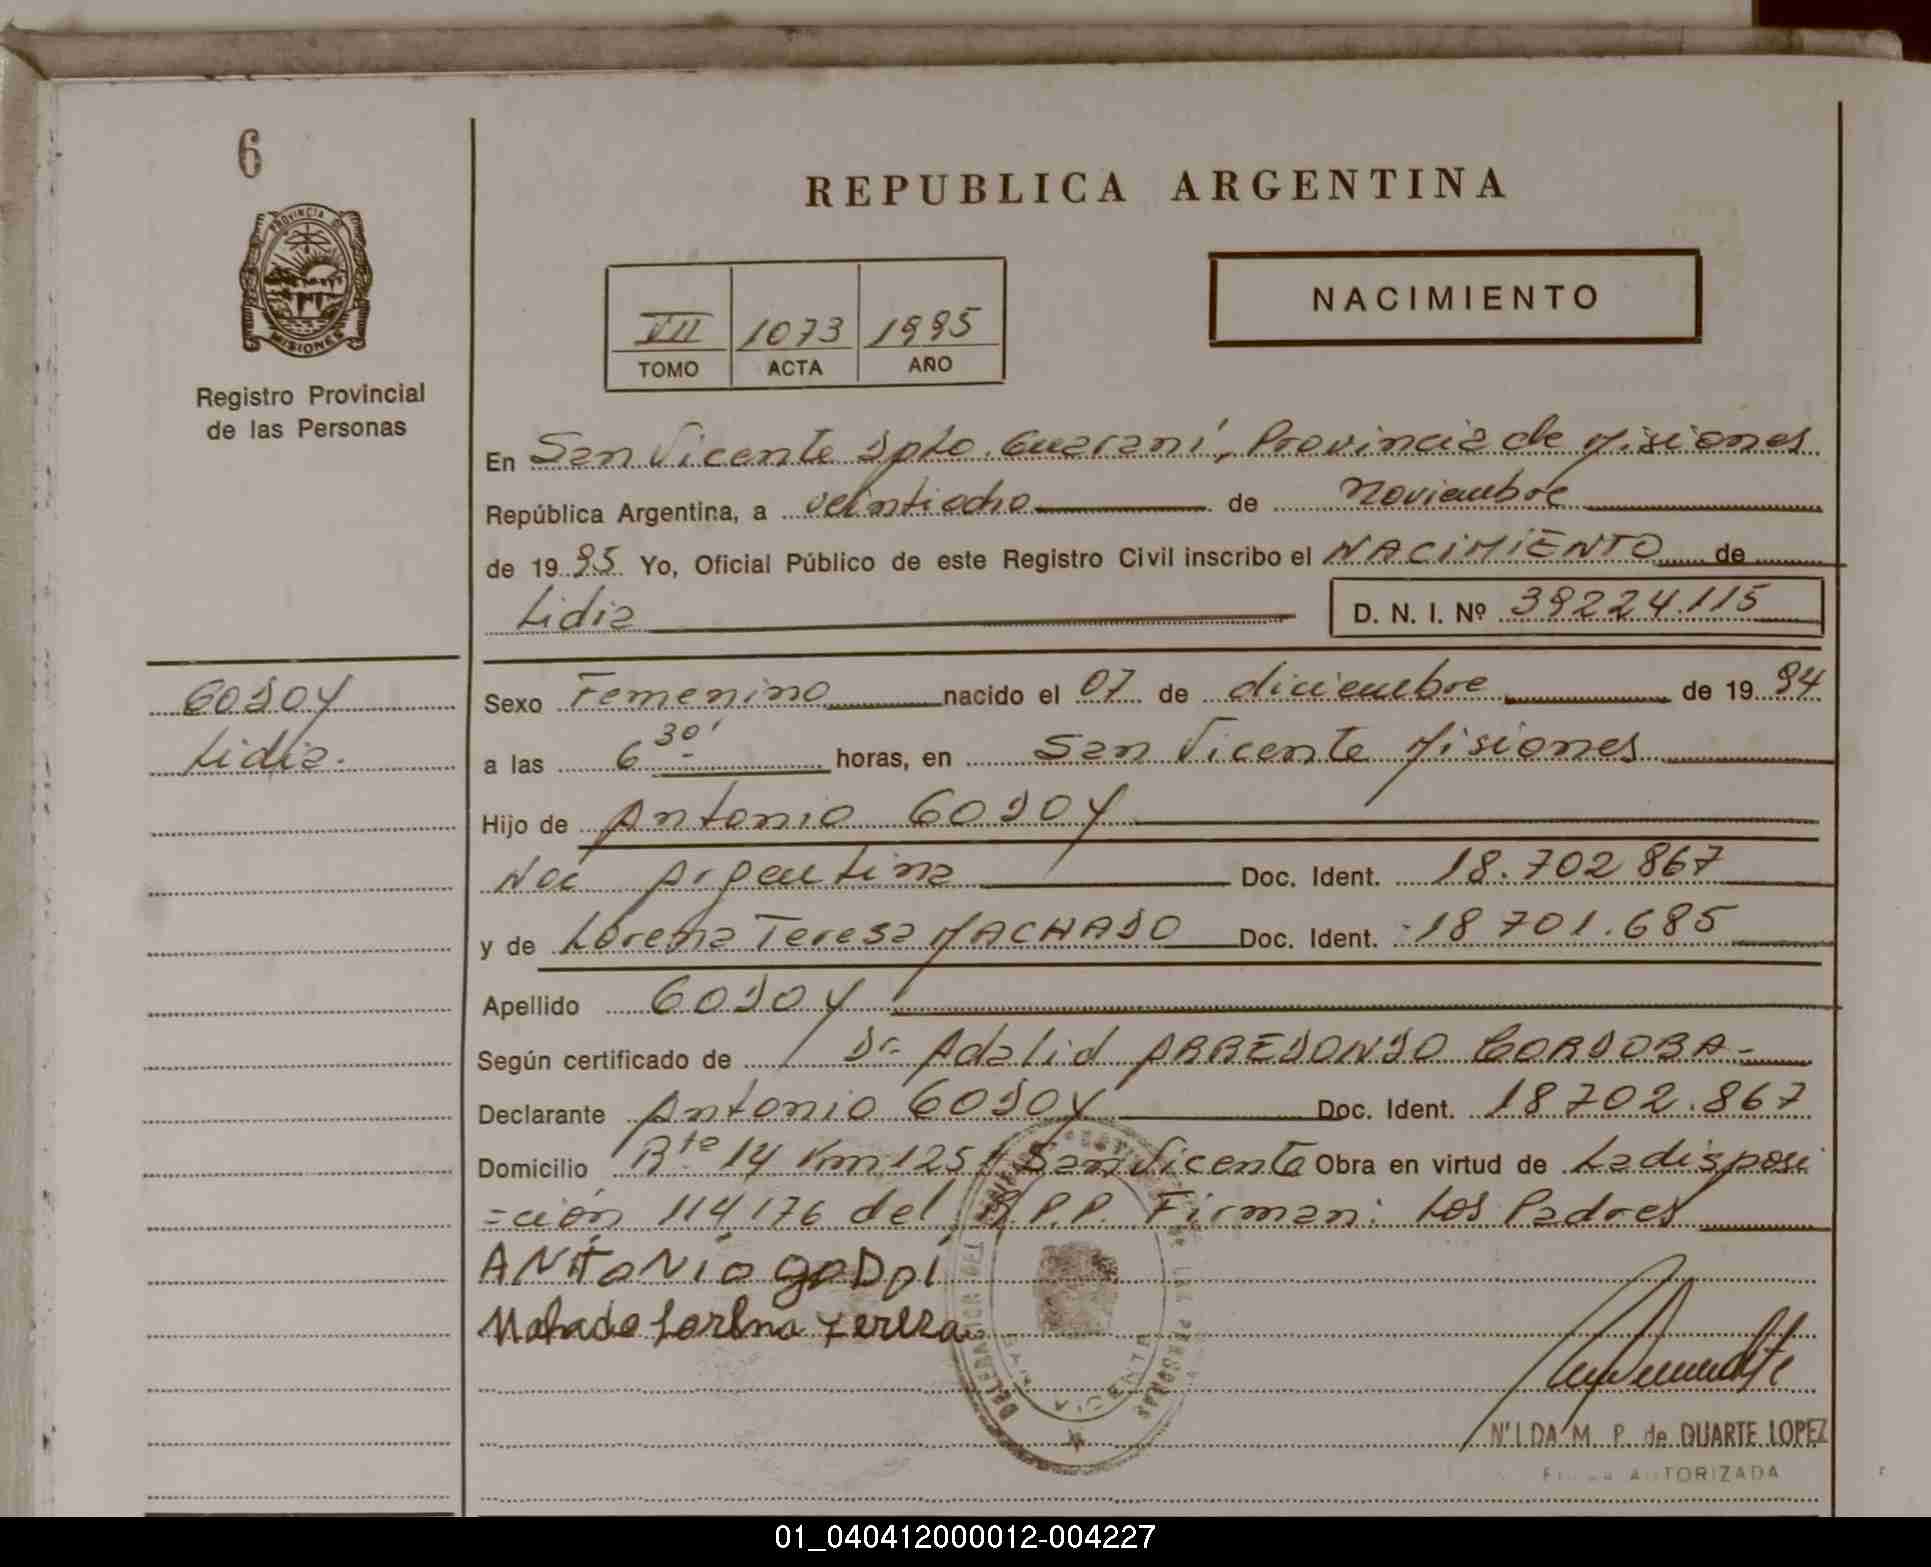 6
PROVINCIA DE
MISIONES
Registro Provincial
de las Personas
REPUBLICA ARGENTINA
VII 1073 1995
TOMO ACTA AÑO
NACIMIENTO
En San Vicente Dpto. Guaraní, Provincia de Misiones
República Argentina, a veintiocho de Noviembre
de 1995 Yo, Oficial Público de este Registro Civil inscribo el NACIMIENTO de
Lidia D. N. I. Nº 39224.115
GODOY
Lidia.
Sexo Femenino nacido el 07 de diciembre de 1994
a las 6 30' horas, en San Vicente Misiones
Hijo de Antonio GODOY
Nac Argentina Doc. Ident. 18.702 867
y de Lorena Teresa MACHADO Doc. Ident. 18 701.685
Apellido GODOY
Según certificado de Dr. Adalid ARREDONDO CORDOBA-
Declarante Antonio GODOY Doc. Ident. 18702.867
Domicilio Rta 14 Km 1251 San Vicente Obra en virtud de La disposi
=ción 114/76 del R.P.P. Firman: Los Padres
ANtoNio goDoi
Mahado Lorena tereza
DELEGACION DEL PERSONAS
VICENTE
N'LDA M. P. de DUARTE LOPEZ
AUTORIZADA
01_040412000012-004227